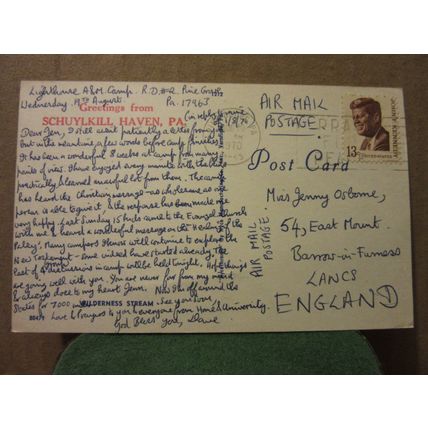 Lighthouse A&M. Camp R.D.#2 Pine Grove
Wednesday, 19th August Pa. 17963
Greetings from
SCHUYLKILL HAVEN, PA.
Dear Jen, I still await patiently a letter from you
but in the meantime, a few words before camp finishes.
It has been a wonderful 8 weeks at camp from many
points of view. I have enjoyed every minute with the kids
practically learned an awful lot from them. The camp
has heard the Christian message - as wholesome as one
person is able to give it & the response has been
very happy. Last Sunday 15 kids came to the church
with me & heard a wonderful message on the
Many campers I know will continue to explore the
New Testament - some indeed have started already. The
last of in camp will be held tonight.
are going well with you. You are never far from my mind
& always love to my heart Jenni. Now I'm off around the
States for 7000 miles See you soon,
WILDERNESS STREAM
Love & Prayers to you & everyone from Home & University.
God Bless You, Dave
AIR MAIL
POSTAGE
1970
13c
UNITED STATES
JOHN F. KENNEDY
Post Card
AIR MAIL
POSTAGE
Miss Jenny Osborne,
54, East Mount,
Barrow-in-Furness
LANCS
ENGLAND